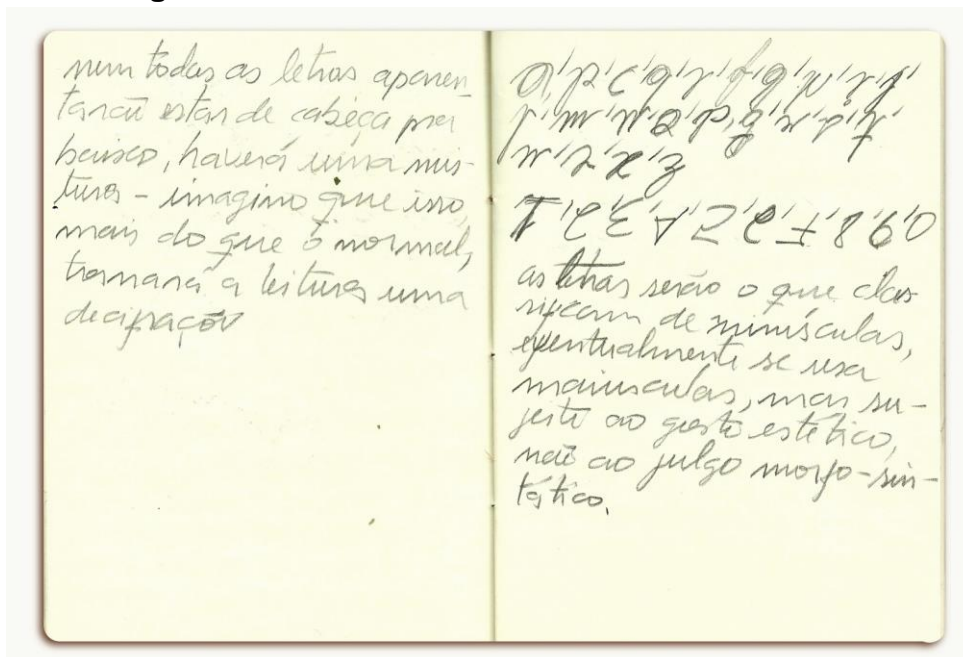 nem todas as letras aparen-
tarão estar de cabeça pra
baixo, haverá uma mis-
tura - imagino que isso,
mais do que o normal,
tornará a leitura uma
decifração
as letras serão o que clas-
sificam de minúsculas,
eventualmente se usa
maiusculas, mas su-
jeito ao gosto estético,
não ao julgo morfo-sin-
tático.